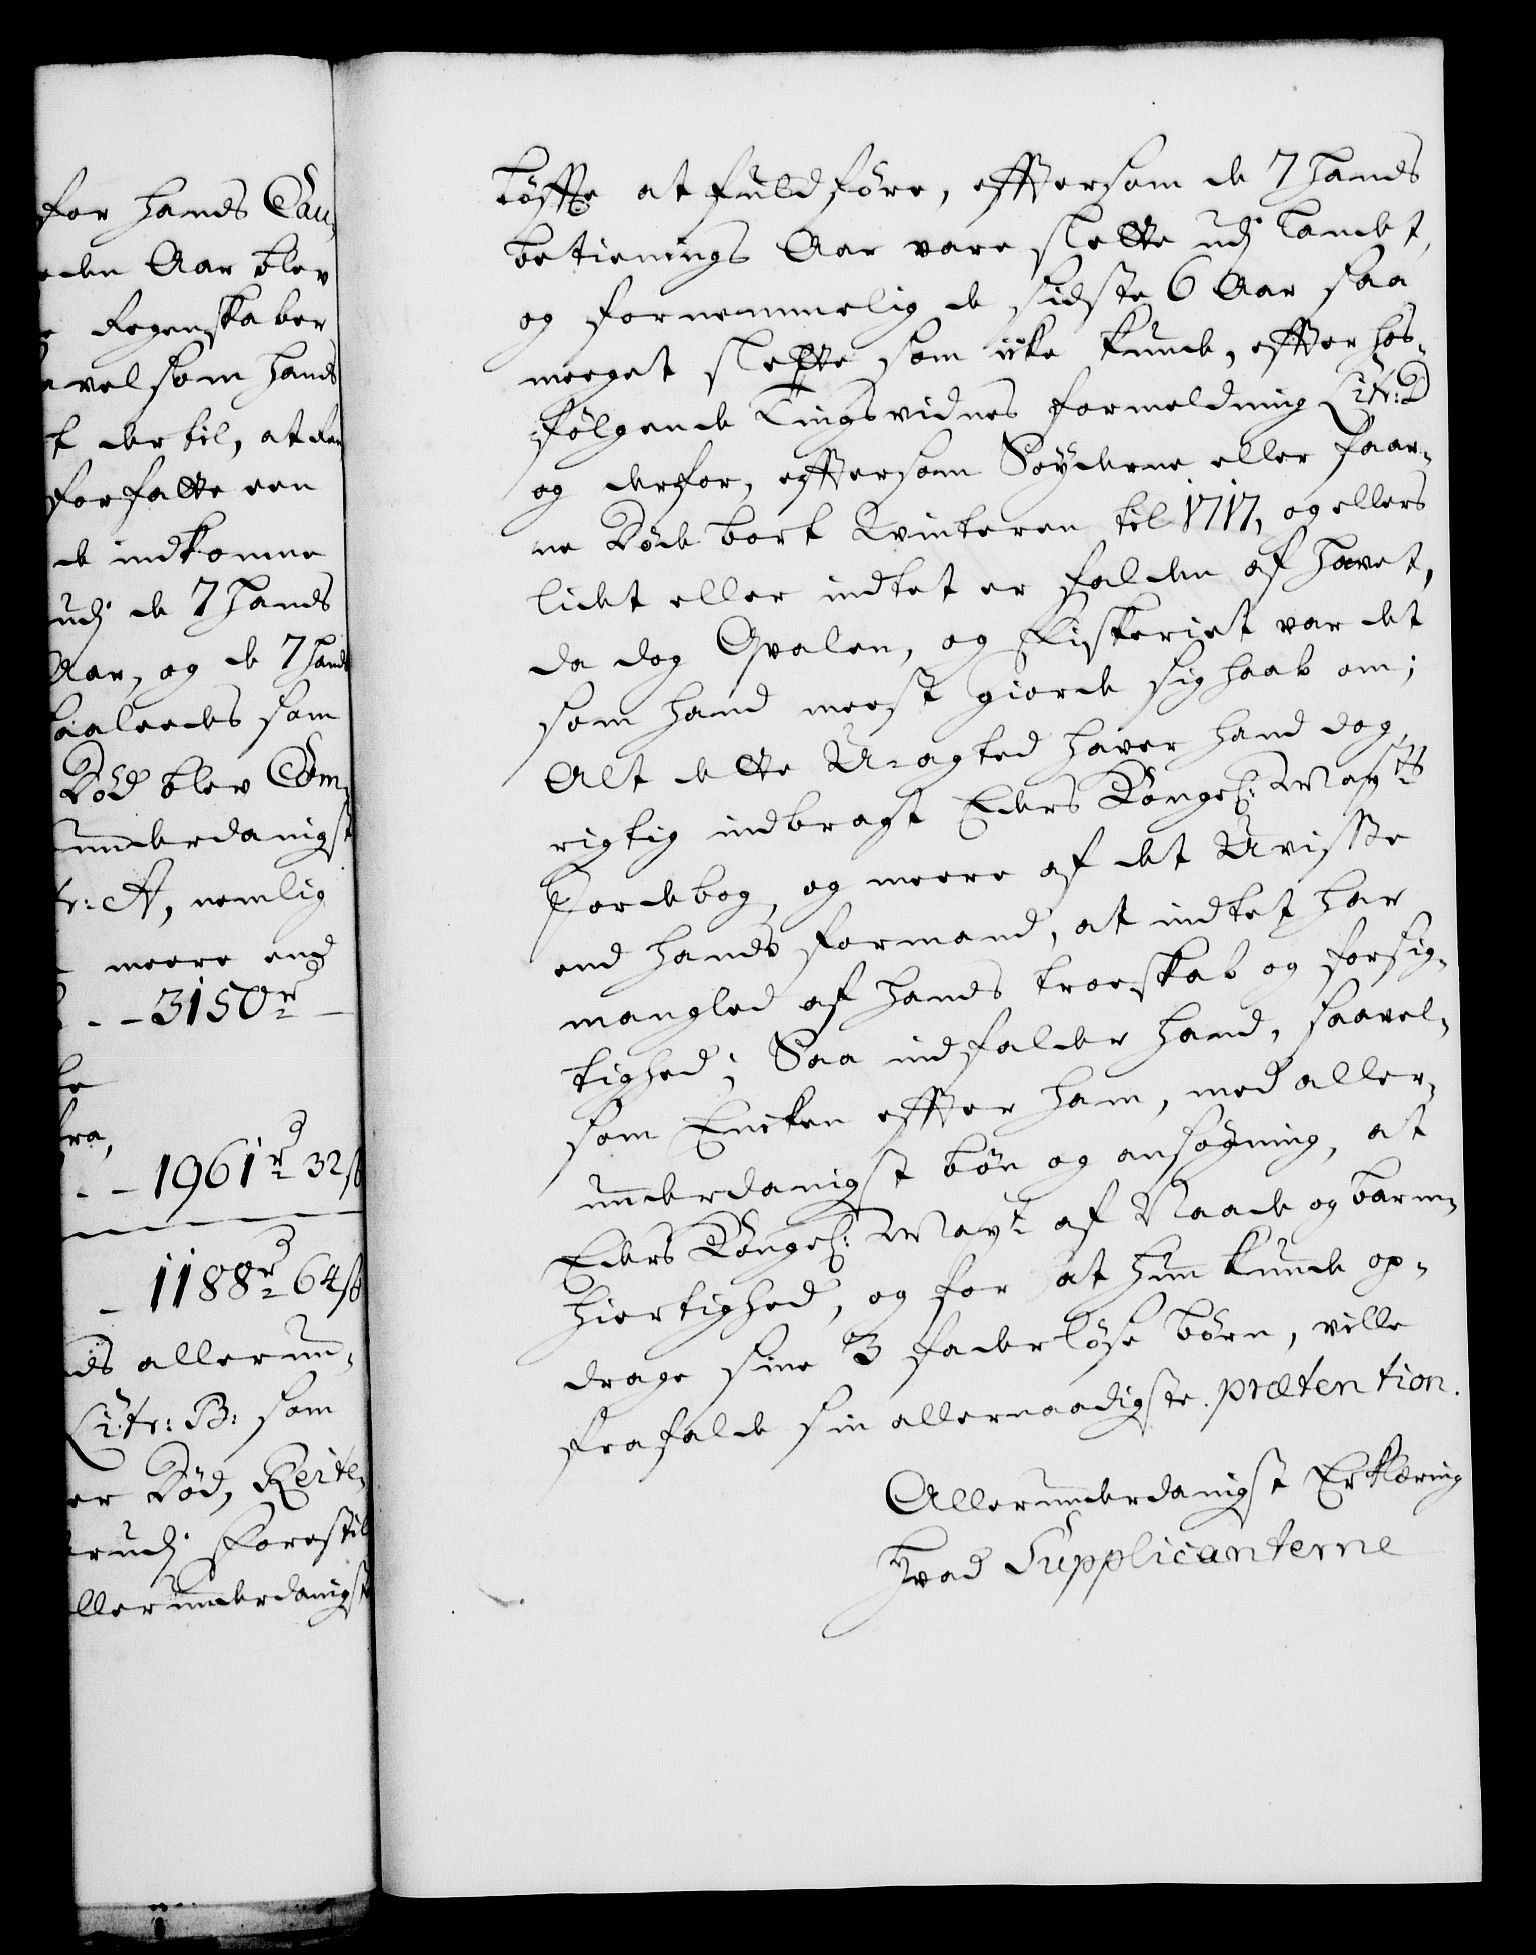 for hands Cau¬
eden Aar blev
Regenskaber
vel som hands
t der til, at den
forfatte een
de indkomne
udj de 7 hands
Aar, og de 7 hands
saaledes som
Død blev Com¬
underdanigst
tr: A, nemlig
meere end
- - 3150 rd -
fra,
- - 1961 rd 32 ß
- 1188 rd 64 ß
allerun¬
Litr: B: som
er Død, Reite¬
rudj forestil
llerunderdanigst
at fuldføre, efftersom de 7 hands
betienings Aar vare slette udj Landet,
og fornemmelig de sidste 6 Aar saa
meeget slette som icke kunde, effter hos¬
følgende Tingsvidnes formeldning Litr: D
og derfor, efftersom Søyderne eller faar¬
ne Døde bort Vinteren til 1717, og ellers
lidet eller indtet er falden af havet,
da dog Hvalen, og Fiskeriet var det
som hand meest giorde sig haab om;
Alt dette U-agted haver hand dog
rigtig indbragt Eders Kongel: May:ts
Jordebog, og meere af det Uvisse
end hands formand, at indtet har
mangled af hands troeskab og forsig¬
tighed; Saa indfalder hand, saavel¬
som Encken effter ham, med aller¬
underdanigst bøn og ansøgning, at
Eders Kongel: May:t af Naade og barm¬
hiertighed, og for at hun kunde op¬
drage sine 3 faderløse børn, ville
frafalde sin allernaadigste prætention.
Allerunderdanigst Erklæring
hvad Supplicanterne